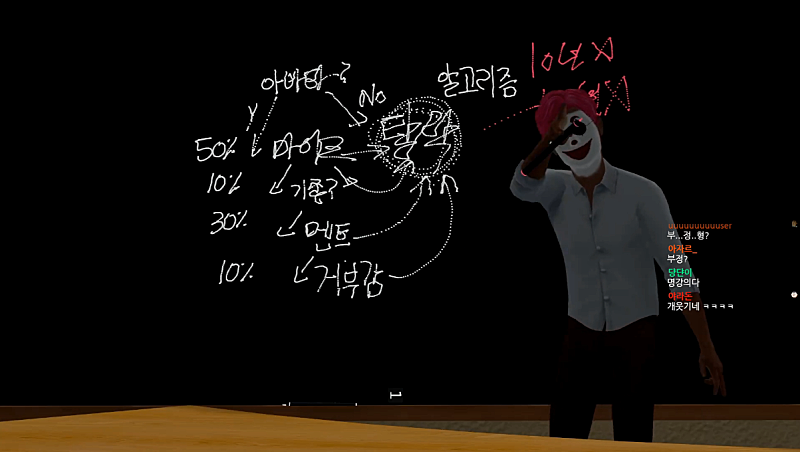 아바타-?
알고리즘
10년 X
Y
No
탈락
50% 마이크
10% 기종?
30% 멘트
10% 거부감
uuuuuuuuuuser
부...정..형?
아자르_
부정?
당단이
명강의다
개웃기네 ㅋㅋㅋㅋ